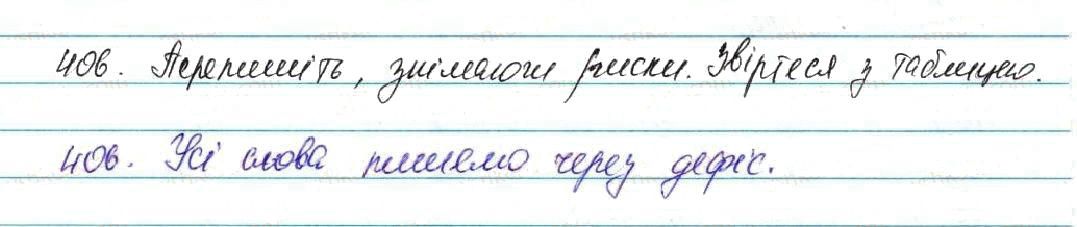 406. Перепишіть, знімаючи риски. Звіртеся з таблицею.
406. Усі слова пишемо через дефіс.